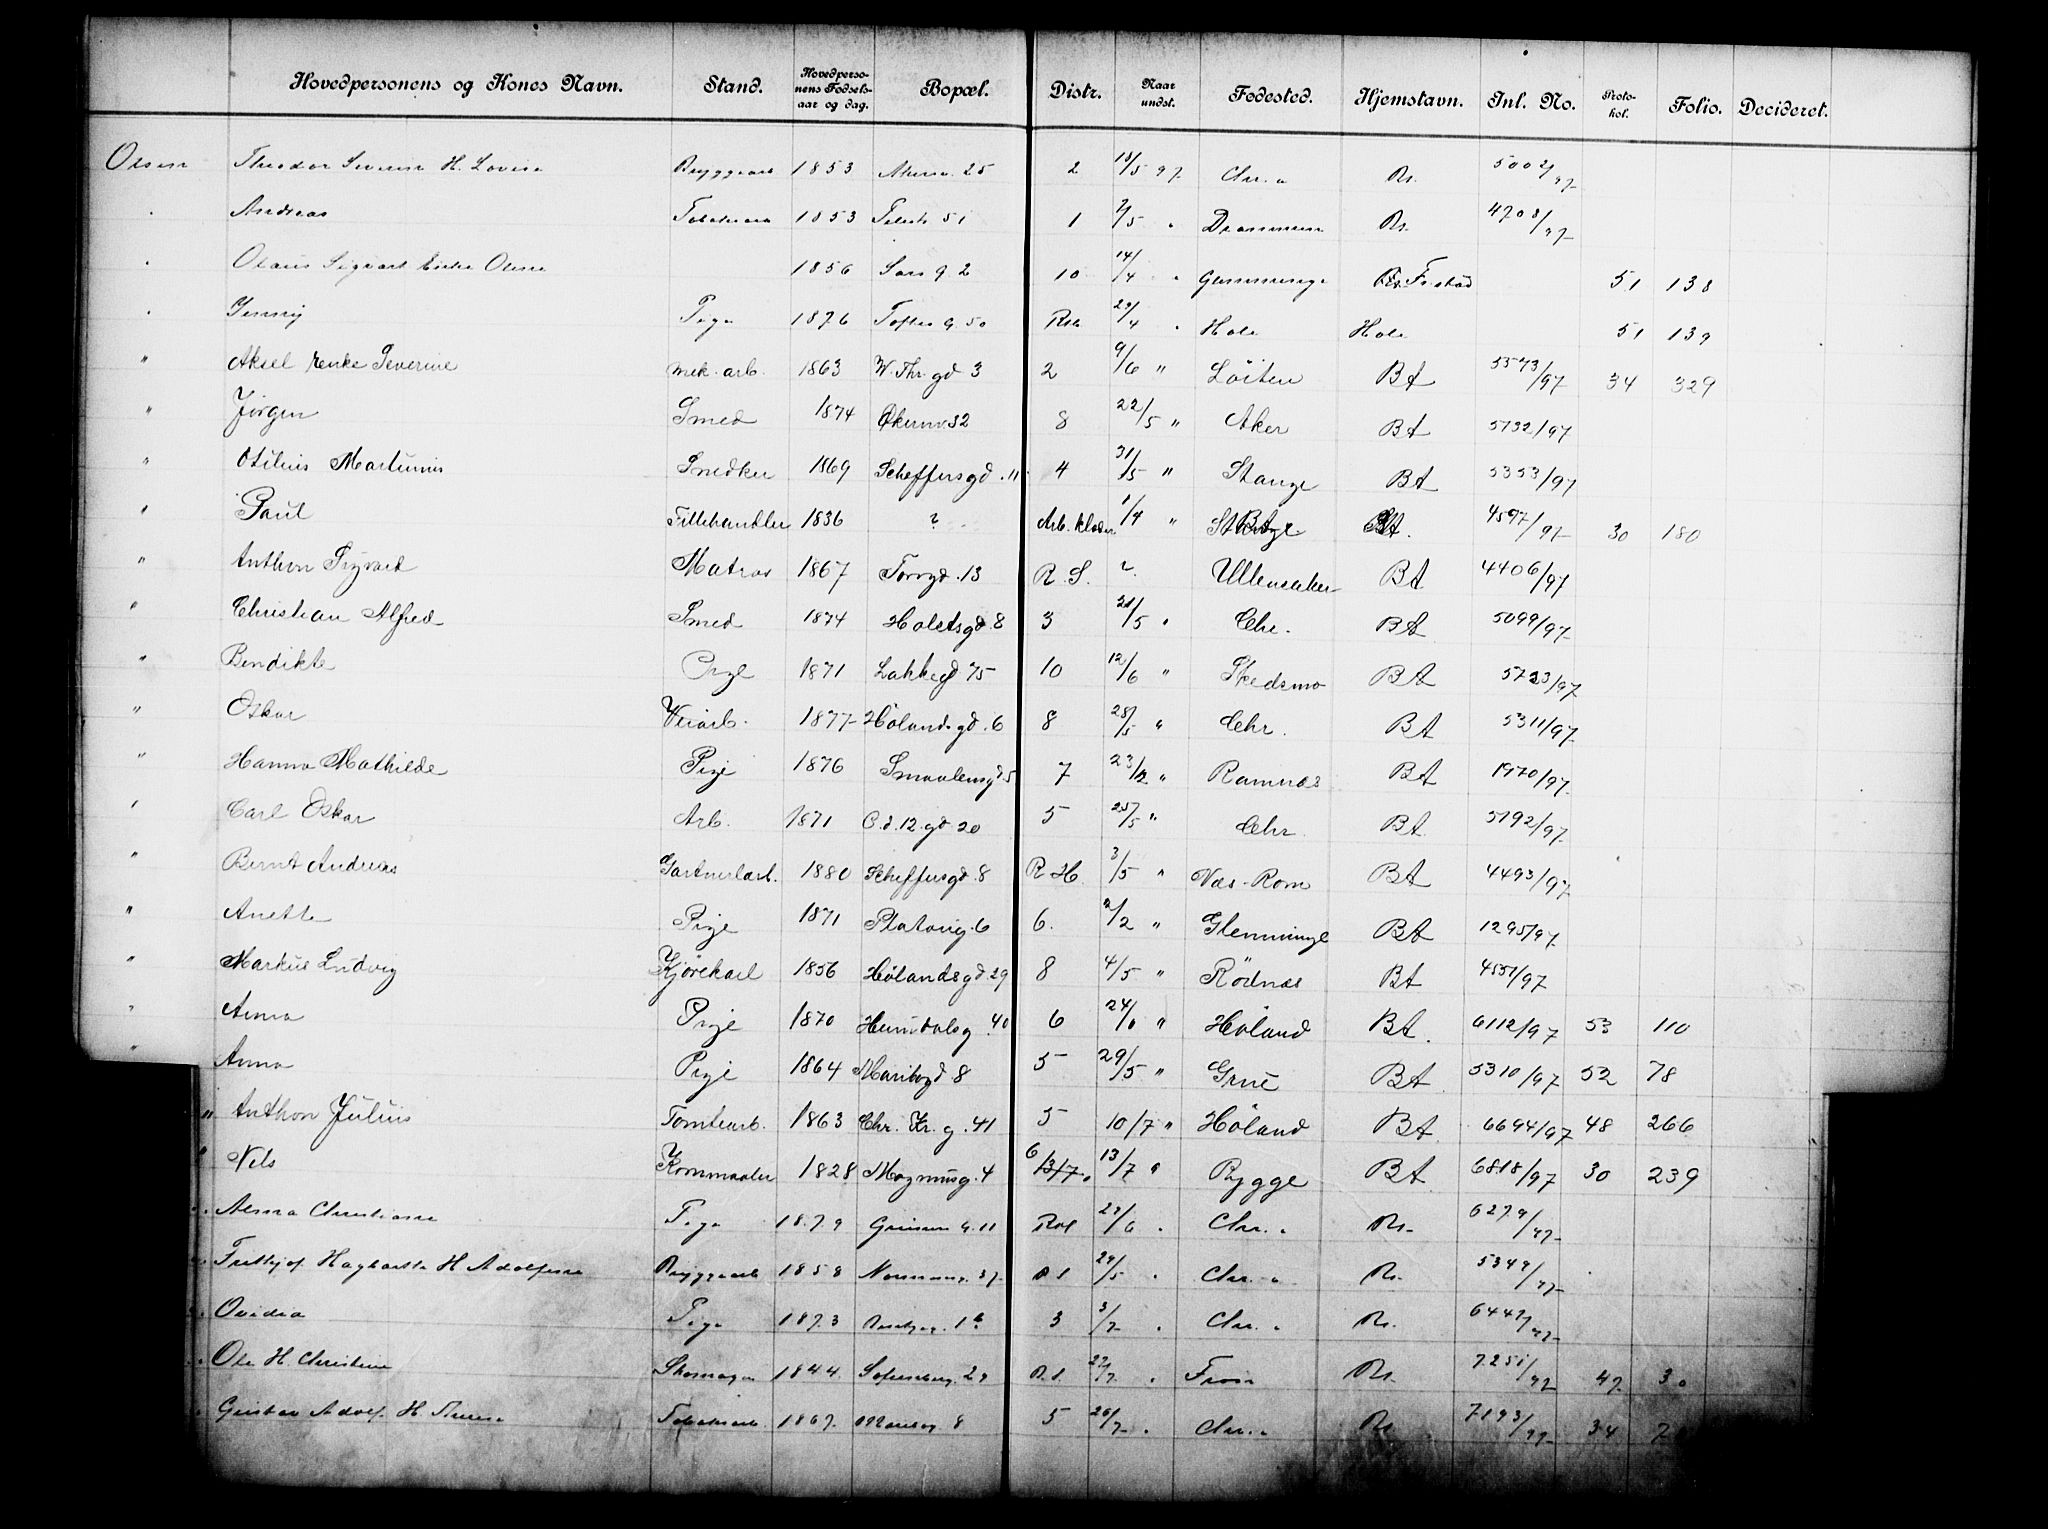 Hovedpersonens og Kones Navn. Stand. Hovedperso-nens Fødsels-aar og dag. Bopæl. Distr. Naar undst. Fødested. Hjemstavn. Inl. No. Proto-kol. Folio. Decideret.
Olsen Theodor Severin H. Lovise Bryggearb 1853 25 2 18/5 97 Chr.a Bt. 5002/97
" Andreas 1853 51 1 2/5 " Drammen Bt. 4708/97
" Olaus Sigvart Enke Oline 1856 Sars g. 2 10 14/4 " Fr.stad 51 138
" Jenny Pige 1876 Toftes G. 50 29/4 " Hole Hole 51 139
" Aksel Enke Severine mek. arb. 1863 W. Thr. gd 3 2 9/6 " Löiten Bt 5573/97 34 329
" Jørgen Smed 1874 Økernv. 32 8 22/5 " Aker Bt 5132/97
" Otilius Martinius Snedker 1869 Scheffersgd. 11 4 31/5 " Stange Bt 5353/97
" Paul Fillehandler 1836 ? Arb. kloden 1/4 " Bt. 4597/97 30 180
" Anthon Sigvart Matros 1867 Torvgd. 13 R. S. ? Ullensaker Bt 4406/97
" Christian Alfred Smed 1874 Holstsgd. 8 3 21/5 " Chr. Bt 5099/97
" Bendikte Pige 1871 Lakkegd 75 10 12/6 " Skedsmo Bt 5723/97
" Oskar Veiarb. 1877 Hölandsgd. 6 8 28/5 " Chr. Bt 5311/97
" Hanna Mathilde Pige 1876 Smaalensgd 5 7 23/2 " Ramnæs Bt 1970/97
" Carl Oskar Arb. 1871 C. d. 12. gd 20 5 25/5 " Chr. Bt. 5192/97
" Bernt Andreas Gartnerlærl. 1880 Scheffersgd. 8 R H. 3/5 " Næs-Rom Bt 4493/97
" Anette Pige 1871 Platoug. 6 6. 2/2 " Glemminge Bt 1295/97
" Markus Ludvig Kjørekarl 1856 Hölandsgd. 29 8 4/5 " Rödnæs Bt 4551/97
" Anna Pige 1870 Heimdalsg. 40 6 24/6 " Höland Bt. 6112/97 53 110
" Anna Pige 1864 Maribogd 8 5 29/5 " Grue Bt 5310/97 52 78
" Anthon Julius Tomtearb. 1863 Chr. Kr. g. 41 5 10/7 " Höland Bt 6694/97 48 266
" Nels Kornmaaler 1828 Magnusg. 4 6 13/7. 13/7 " Rygge Bt 6818/97 30 239
" Alma Christiane Pige 1879 G. 11 29/6 " Chr.a Bt. 6279/97
" Frithjof H Adolfine Bryggearb 1858 37 R S 29/5 " Chr.a Bt. 5349/97
" Ovidia Pige 1873 3 3/7 " Chr.a Bt. 6447/97
" Ole H. Christine Skomager 1844 Sofienberg. 29 R. S. 27/7 " Bt. 7251/97 47 30
" Gustav Adolf H. 1867 8 5 26/7 " Chr.a Bt. 7193/97 34 7